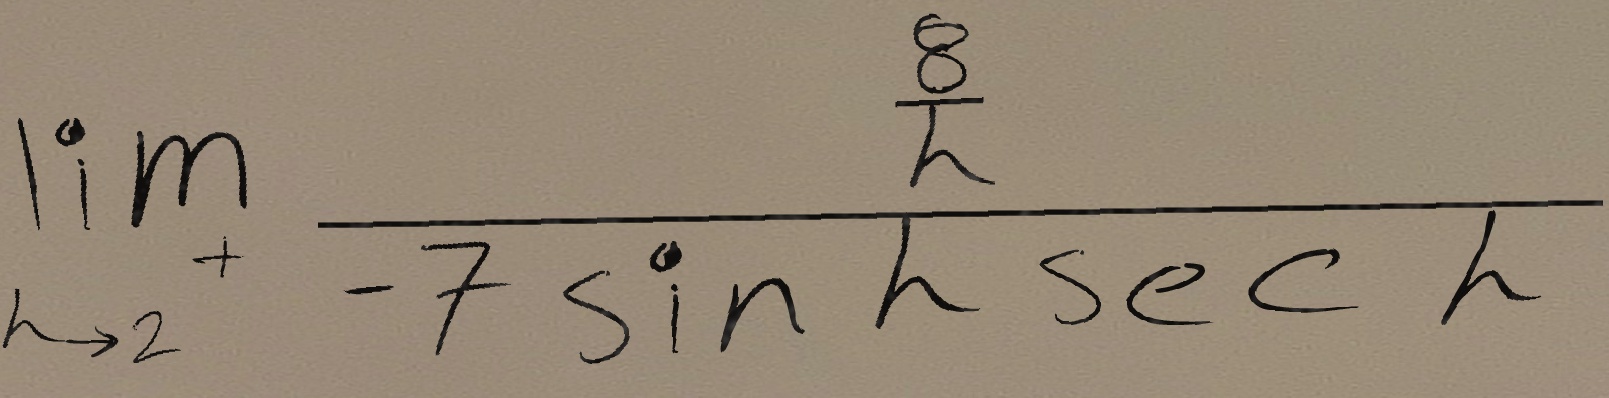 \lim_{h \to 2^+} \frac{\frac{8}{h}}{-7 \sin h \sec h}